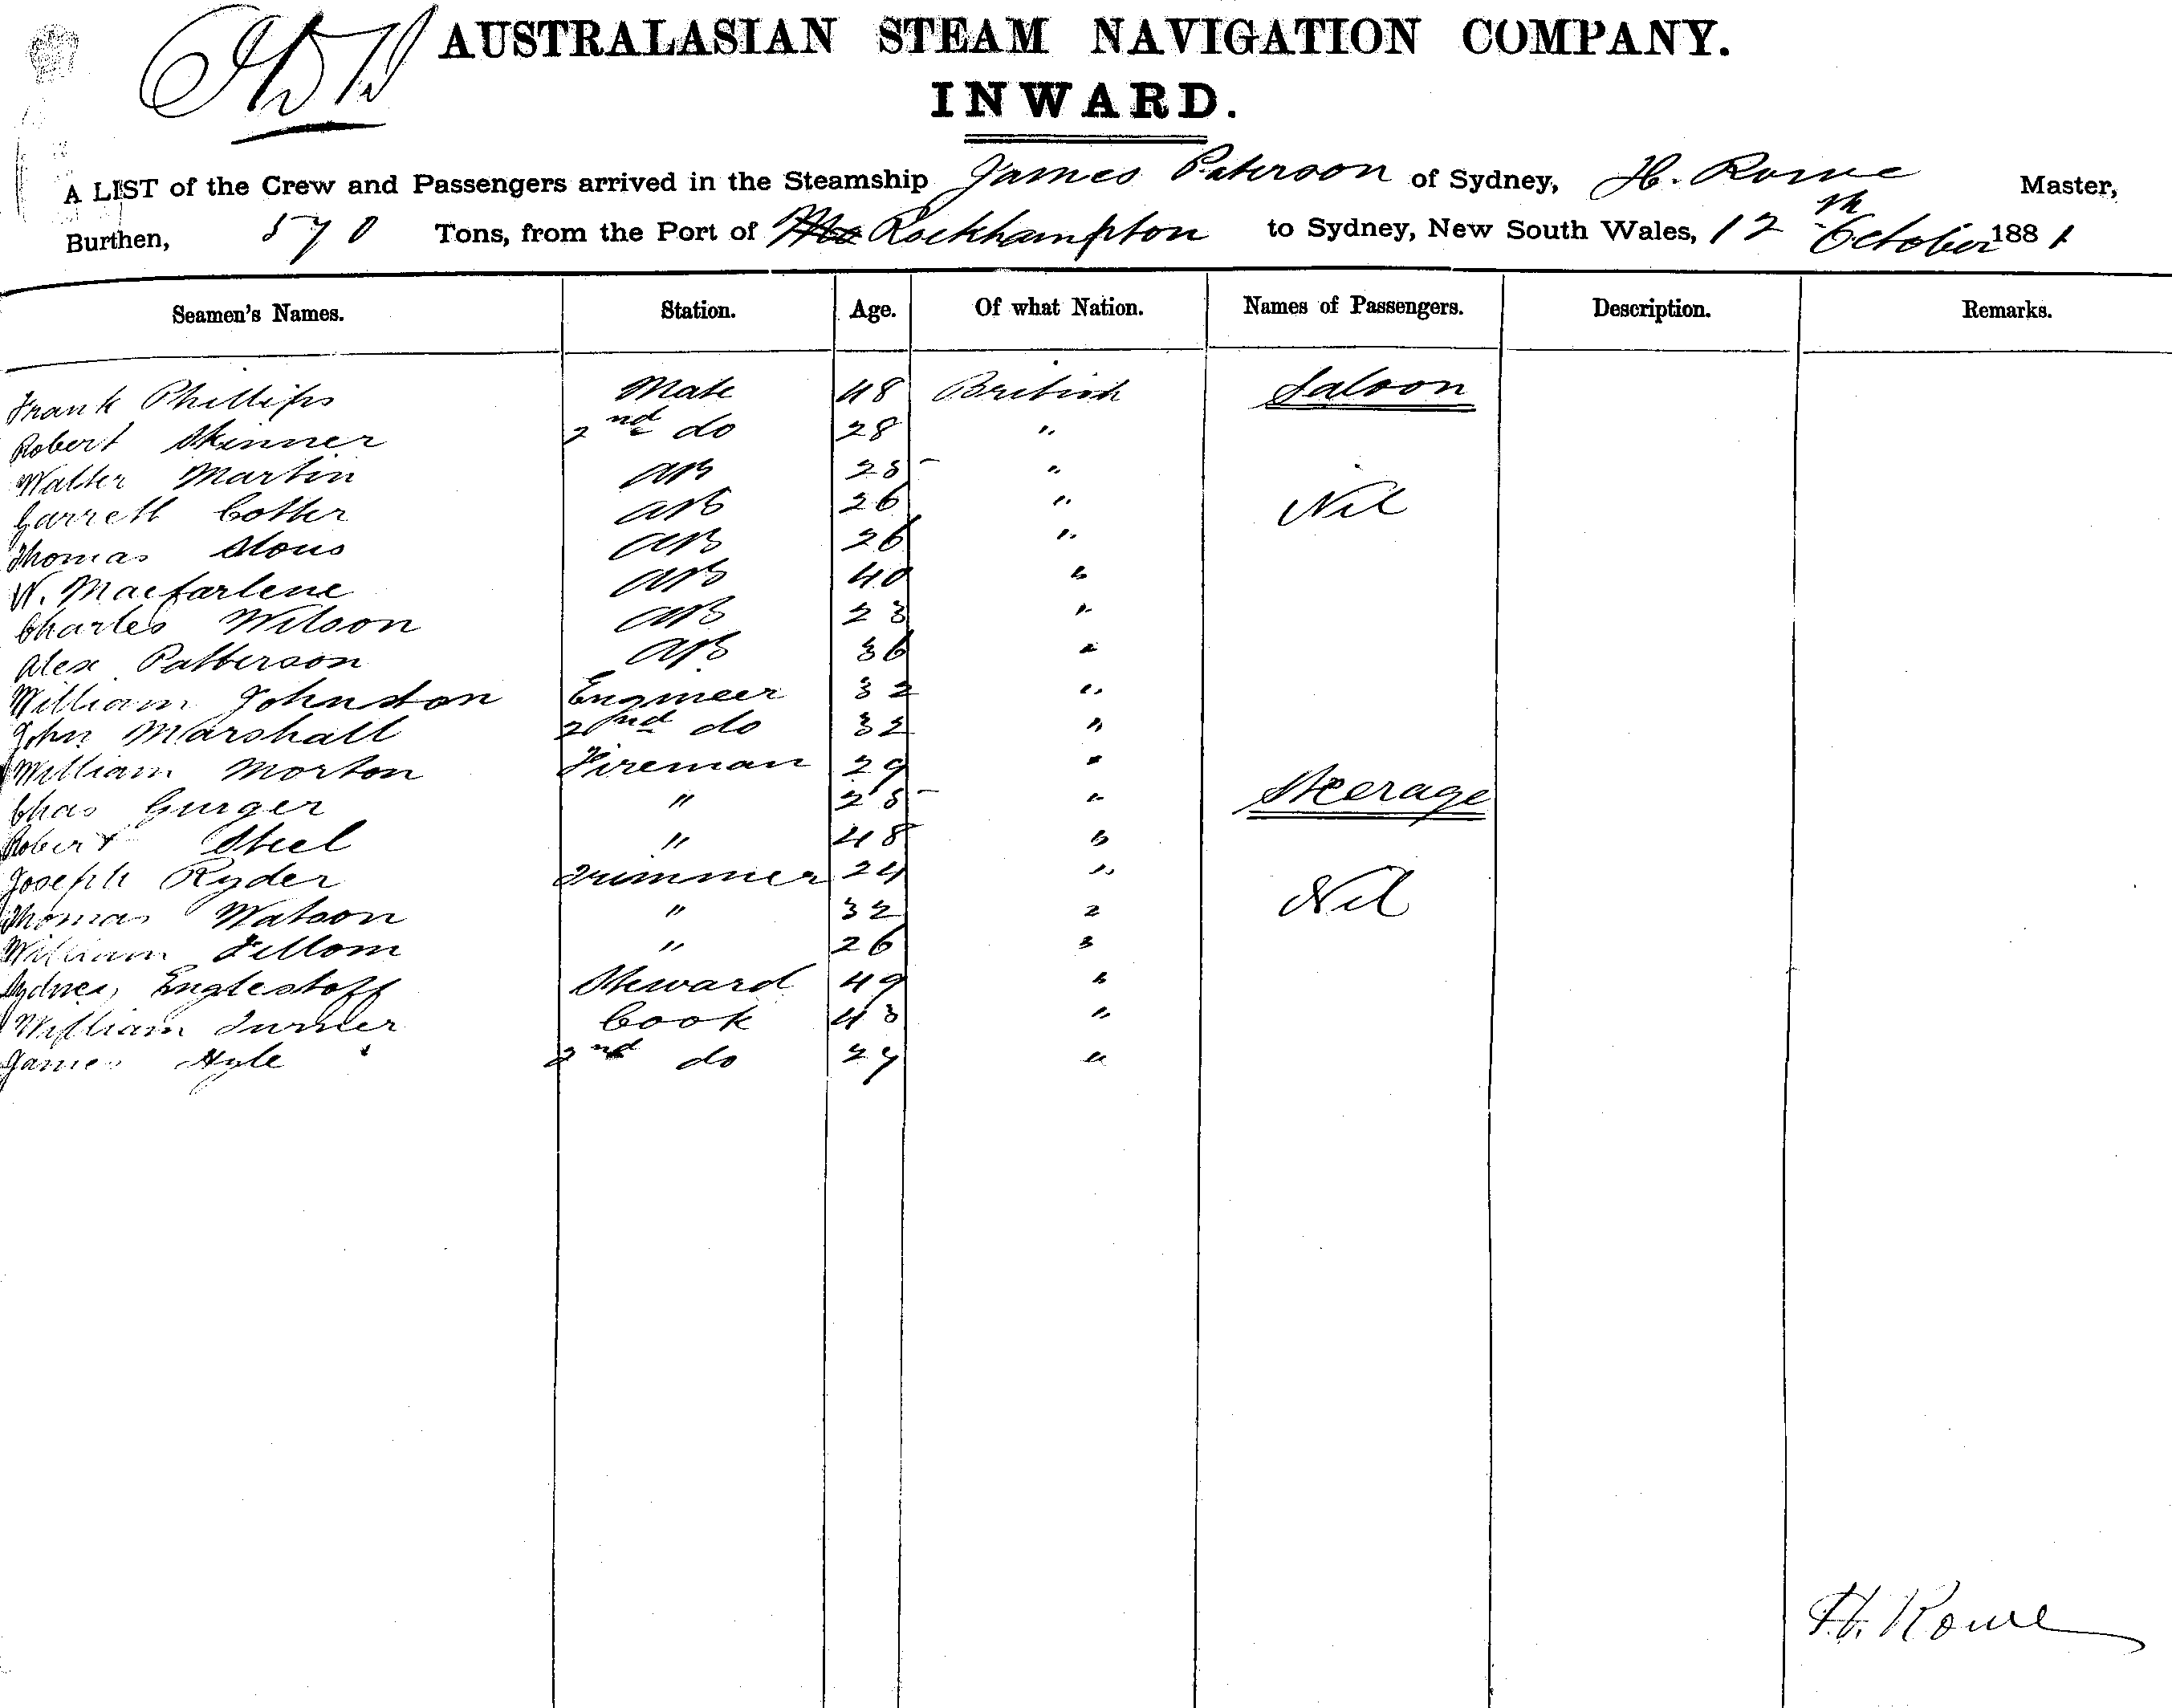 AUSTRALASIAN STEAM NAVIGATION COMPANY.
INWARD.
A LIST of the Crew and Passengers arrived in the Steamship James Paterson of Sydney, H. Rowe Master,
Burthen, 570 Tons, from the Port of Rockhampton to Sydney, New South Wales, 12th October 1881
Seamen's Names. Station. Age. Of what Nation. Names of Passengers. Description. Remarks.
Frank Phillips Mate 48 British Saloon
Robert Skinner 2nd do 28 "
Walter Martin AB 25 "
Garrett Cotter AB 26 " Nil
Thomas AB 26 "
W. Macfarlene AB 40 "
Charles Wilson AB 23 "
Alex Patterson AB 36 "
William Johnston Engineer 32 "
John Marshall 2nd do 32 "
William Morton Fireman 29 "
Chas Gurger " 25 " Steerage
Robert Steel " 48 "
Joseph Ryder Trimmer 24 "
Thomas Watson " 32 " Nil
William Fellom " 26 "
Sydney Englestoff Steward 49 "
William Turner Cook 43 "
James Hyle 2nd do 27 "
H. Rowe